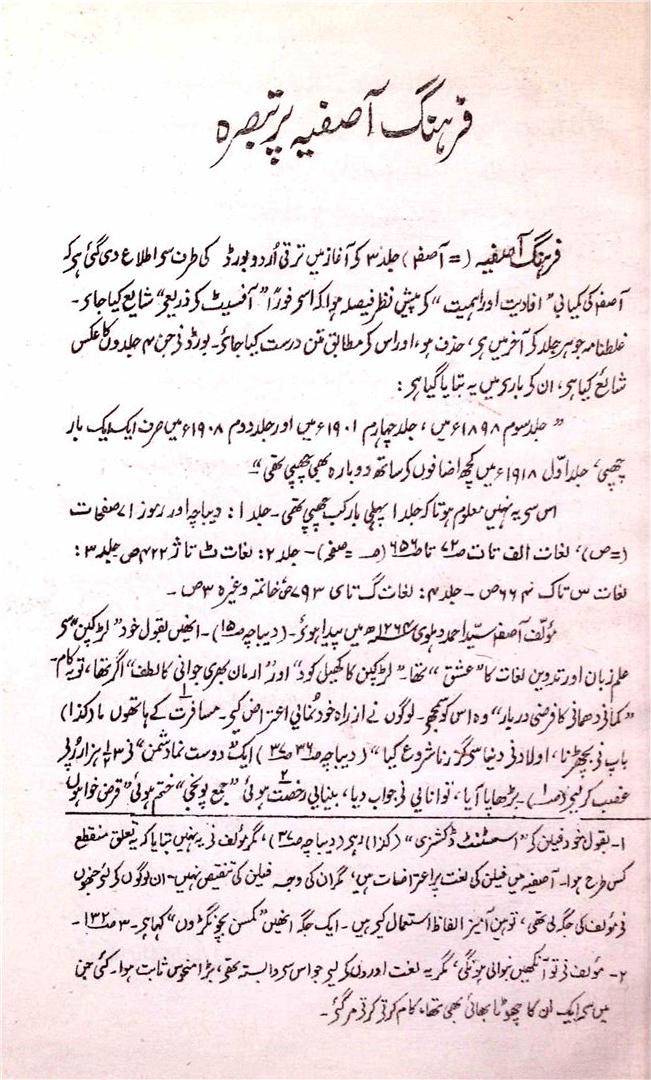 فرہنگ آصفیہ پر تبصرہ
فرہنگ آصفیہ (= آصفہ) جلد ۳ کے آغاز میں ترقی اُردو بورڈ کی طرف سے اطلاع دی گئی ہے کہ
آصفہ کی کمیابی " افادیت اور اہمیت " کے پیش نظر فیصلہ ہوا کہ اسے فوراً " آفسیٹ کے ذریعے " شایع کیا جاے ۔
غلطنامہ جو ہر جلد کے آخر میں ہے، حذف ہو، اور اس کے مطابق متن درست کیا جائے ۔ بورڈ نے جن ۴ جلدوں کا عکس
شائع کیا ہے، ان کے بارے میں یہ بتایا گیا ہے :
" جلد سوم ۱۸۹۸ء میں ، جلد چہارم ۱۹۰۱ء میں اور جلد دوم ۱۹۰۸ء میں صرف ایک ایک بار
چھپی، جلد اوّل ۱۹۱۸ء میں کچھ اضافوں کے ساتھ دوبارہ بھی چھپی تھی "۔
اس سے یہ نہیں معلوم ہوتا کہ جلد ۱ پہلی بار کب چھپی تھی ۔ جلد ۱ : دیباچہ اور رموز ۷۱ صفحات
(= ص)، لغات الف تا ت ص۷۲ تا ص۶۵۶ (ص = صفحہ) ۔ جلد ۲ : لغات ٹ تا ژ ۴۲۲ ص جلد ۳ :
لغات س تا ک ۶۶۴ ص ۔ جلد ۴ : لغات گ تا ی ۷۹۳ ص خاتمہ وغیرہ ۳ ص ۔
مؤلف آصفہ سیّد احمد دہلوی ۱۲۶۲ھ میں پیدا ہوئے ۔ (دیباچہ ص۱۵) ۔ انھیں بقول خود " لڑکپن " سے
علم زبان اور تدوین لغات کا " عشق " تھا ۔ " لڑکپن کا کھیل کود " اور " ارمان بھری جوانی کا لطف " اگر تھا، تو یہ کام ۔
" کمائی دھمائی کا فرضی دربار " وہ اس کو سمجھے ۔ لوگوں نے از راہ خود نمایی اعتراض کیے ۔ مسافرت۱ کے ہاتھوں ماد کذا)
باپ نے بچھڑنا ، اولاد نے دنیا سے گزرنا شروع کیا " (دیباچہ ص۳۶ ص۳۷) ایک " دوست نما دشمن " نے ہزار روپے
غصب کر لیے (ص۱) ۔ بڑھاپا آیا ، توانایی نے جواب دیا، بینایی۲ رخصت ہوئی " جمع پونجی " ختم ہوئی " قرض خواہوں
۱۔ بقول خود فیلن کے " اسسٹنٹ ڈکشنری " (کذا) رہے (دیباچہ ص۳۷) ، مگر مؤلف نے یہ نہیں بتایا کہ یہ تعلق منقطع
کس طرح ہوا ۔ آصفیہ میں فیلن کی لغت پر اعتراضات ہیں، مگر ان کی وجہ فیلن کی تنقیص نہیں ۔ ان لوگوں کے لئے جنھوں
نے مؤلف کی جگہ لی تھی، توہین آمیز الفاظ استعمال کیے ہیں ۔ ایک جگہ انھیں " کمسن بچونگڑوں " کہا ہے ۔ ۳ ص۱۳۲ ۔
۲۔ مؤلف نے تو آنکھیں بنوالی ہونگی، مگر یہ لغت اوروں کے لیے جو اس سے وابستہ تھے، بڑا منحوس ثابت ہوا ۔ کئی جن
میں سے ایک ان کا چھوٹا بھائی بھی تھا، کام کرتے کرتے مر گئے ۔